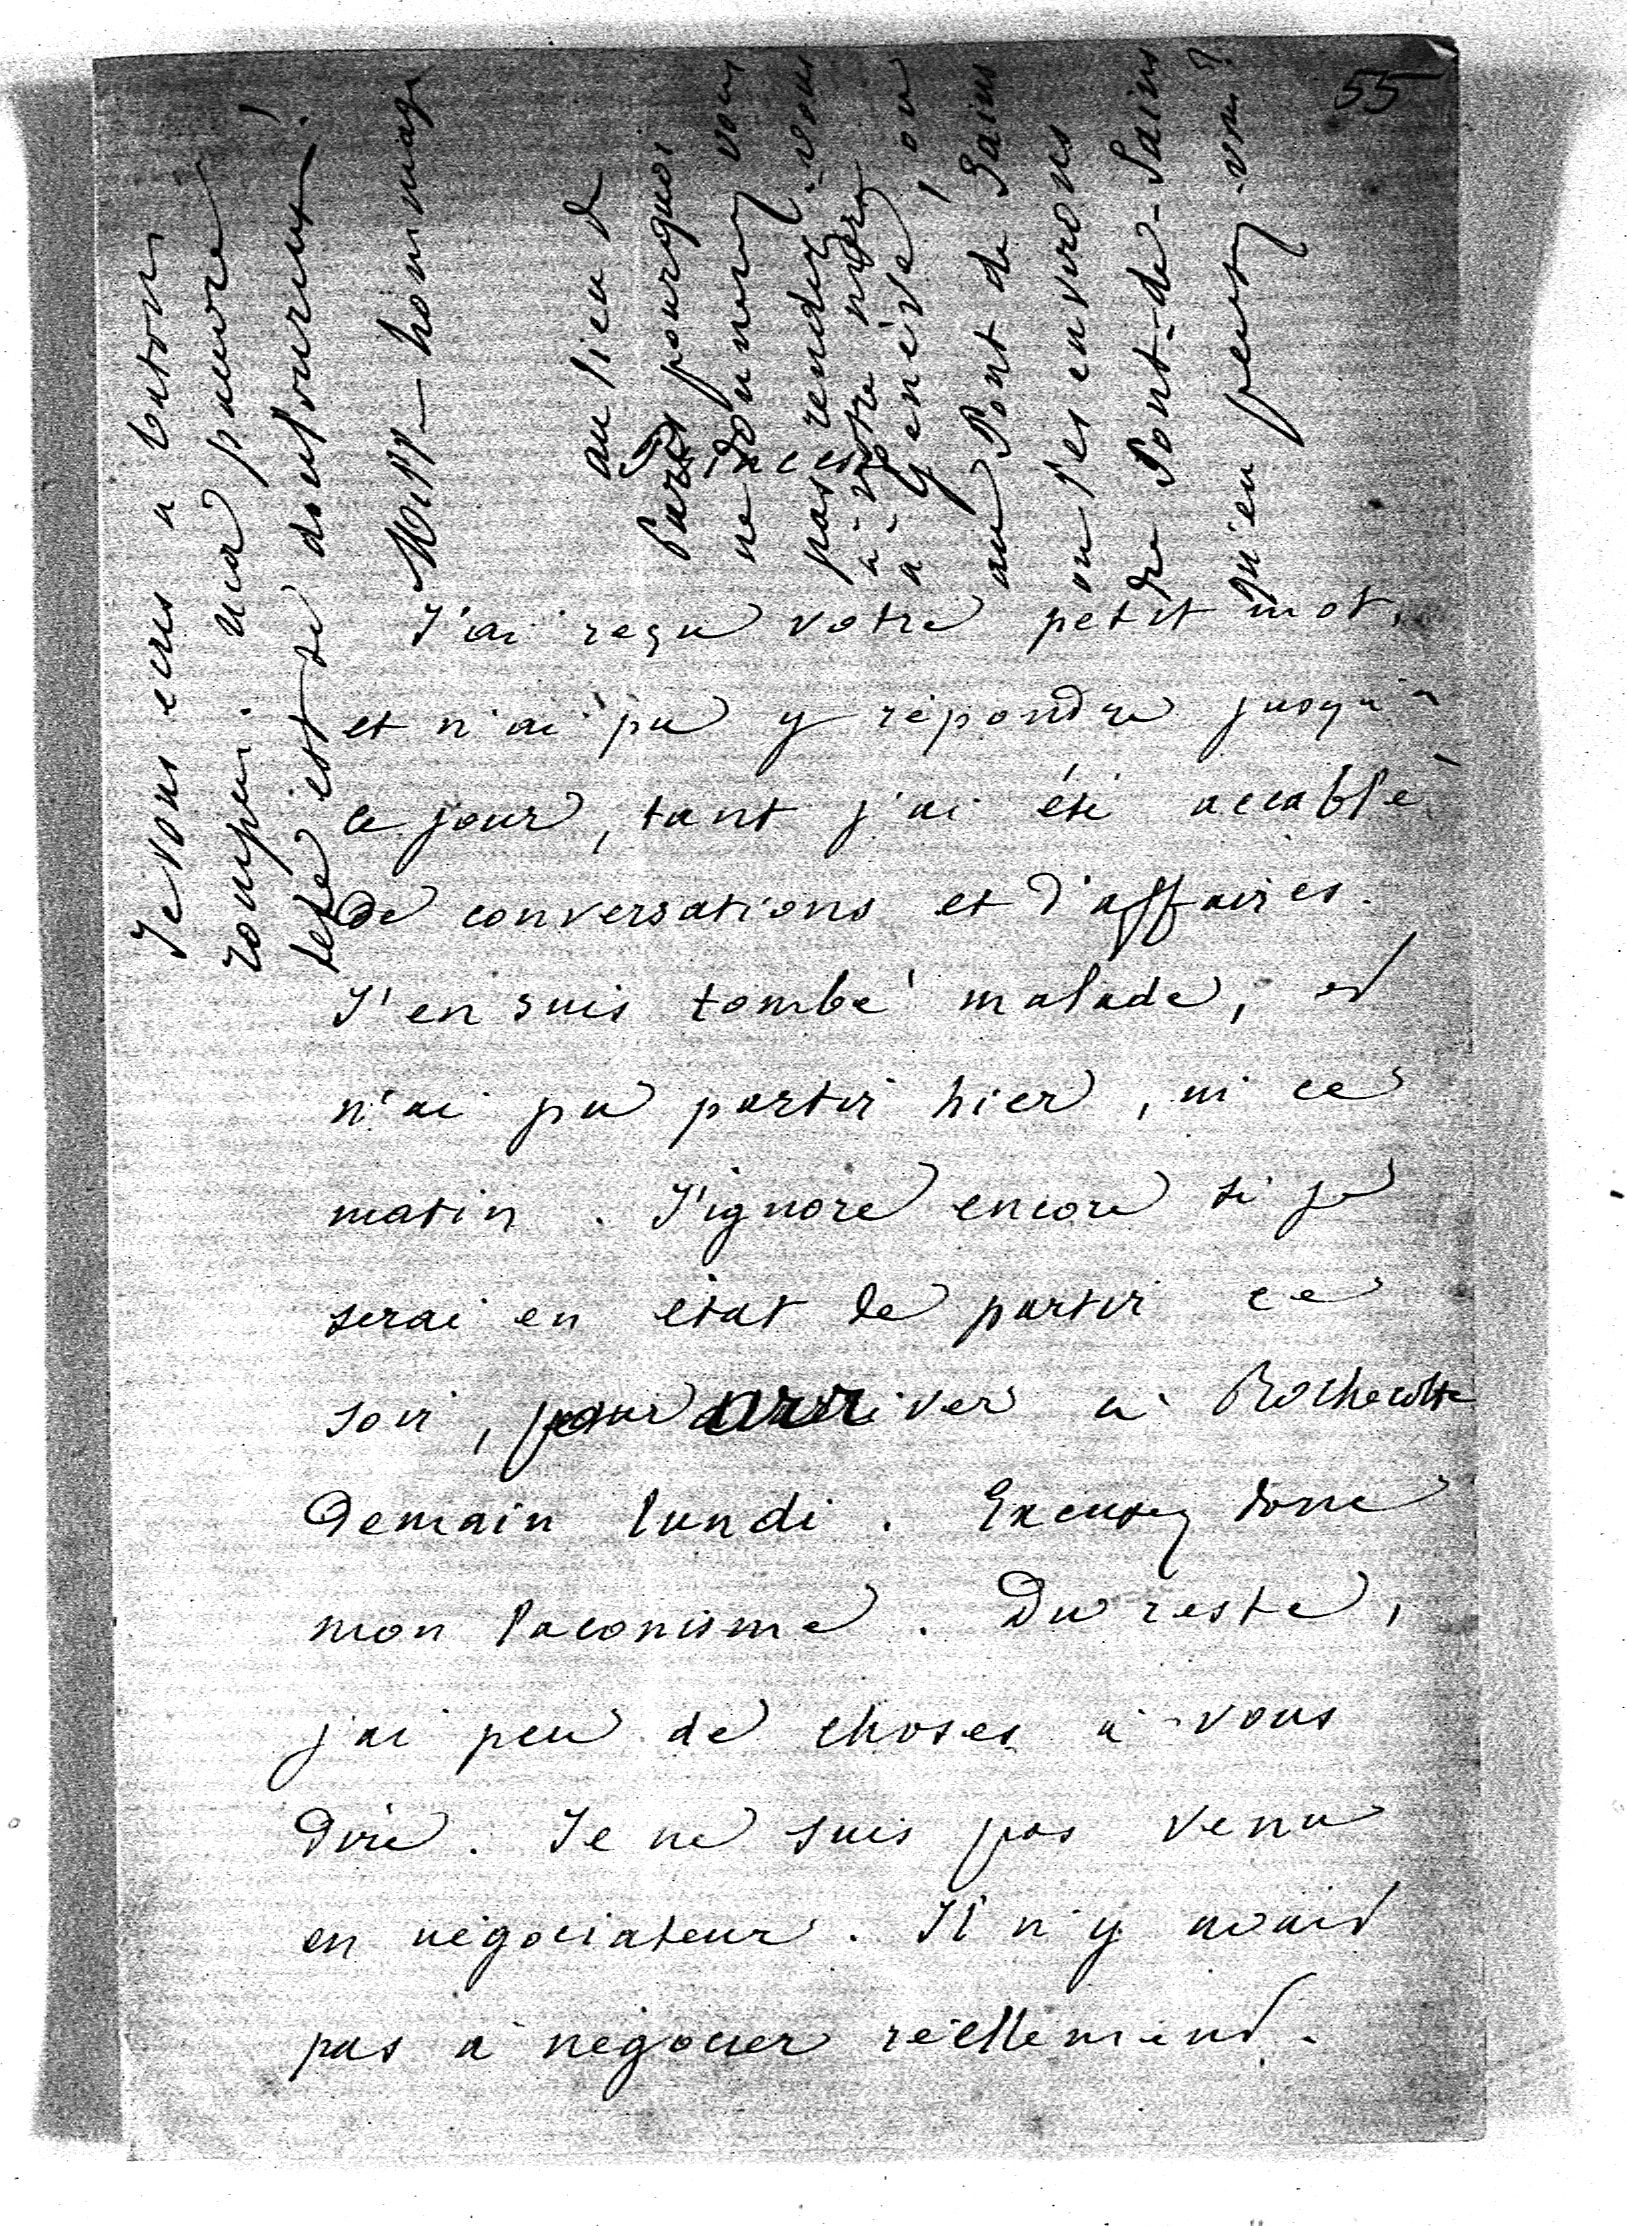 55
Princesse
J'ai reçu votre petit mot,
et n'ai pu y répondre jusqu'à
ce jour, tant j'ai été accablé
de conversations et d'affaires.
J'en suis tombé malade, et
n'ai pu partir hier, ni ce
matin. J'ignore encore si je
serai en état de partir ce
soir, pour arriver à Rochecotte
Demain lundi. Excusez donc
mon laconisme. Du reste,
j'ai peu de choses à vous
dire. Je ne suis pas venu
en négociateur. Il n'y avait
pas à négocier réellement.
Je vous écris à bâton
rompu. ma pauvre
tête est si douloureuse!
hommage
au lieu de
Paris pourquoi
ne donnez vous
pas rendez-vous
à votre
à Genève, ou
au Pont de Sains
ou les environs
de Pont-de-Sains
qu'en pensez-vous?